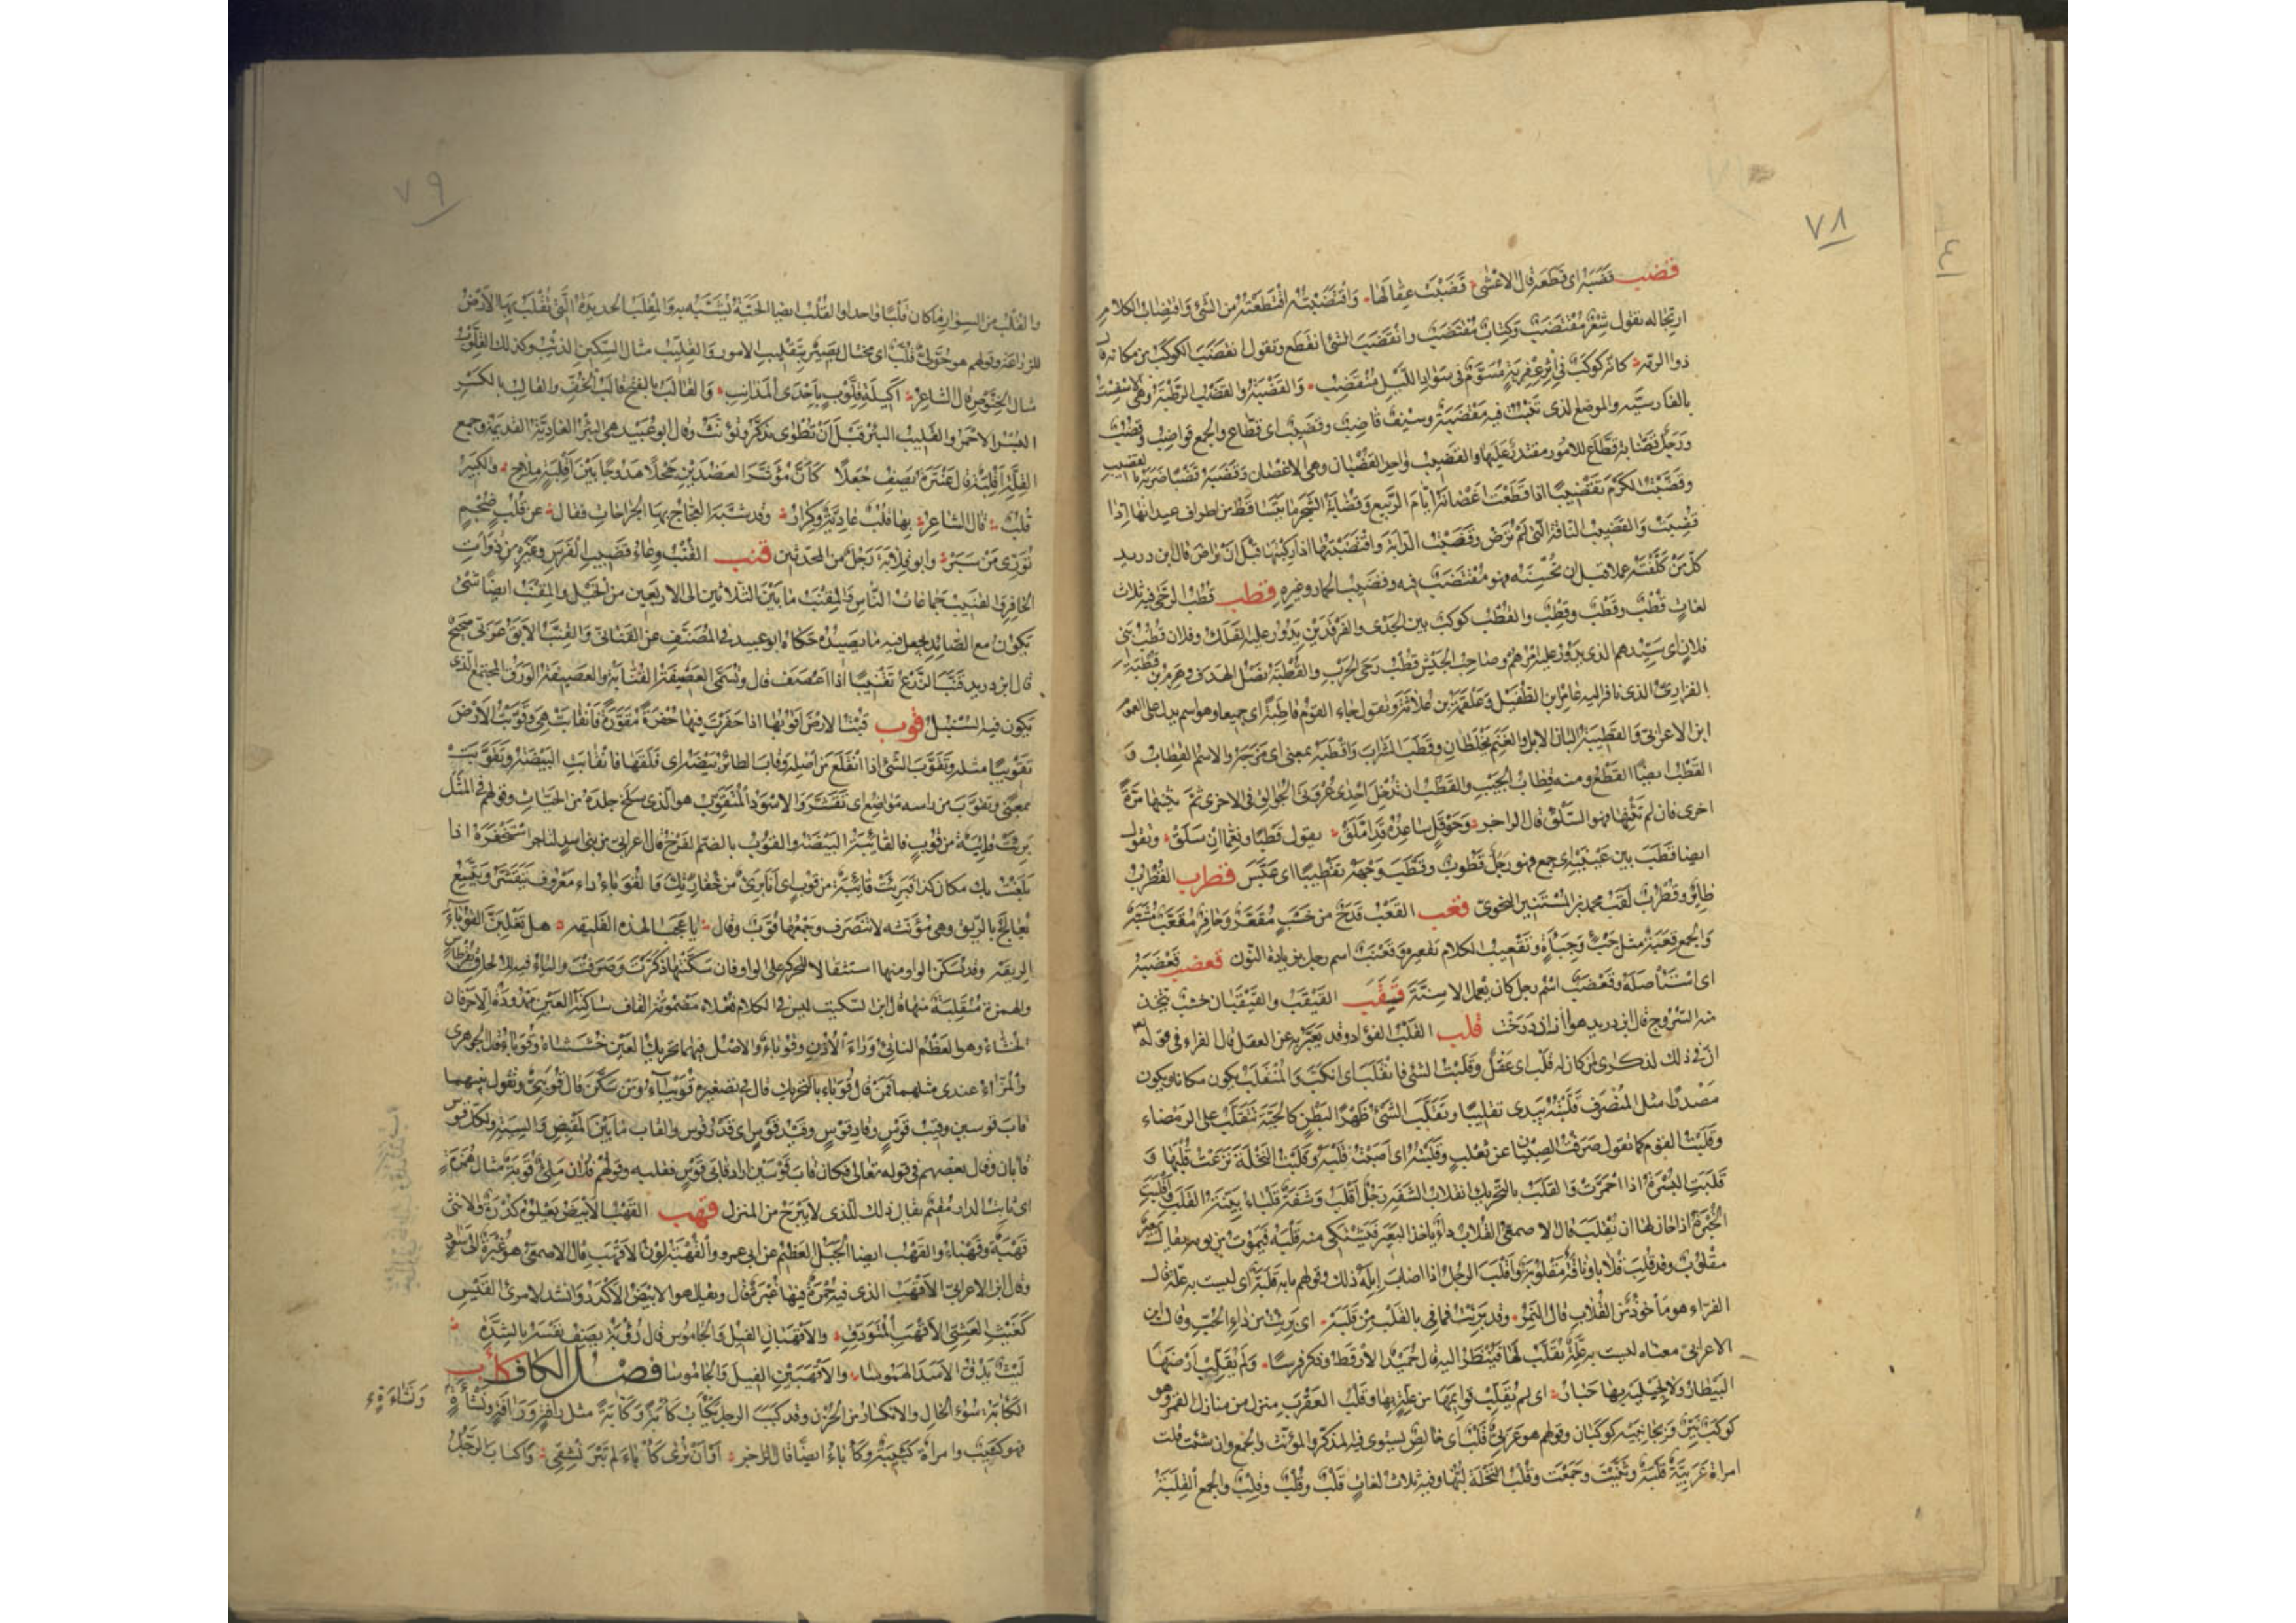 ٧٨
قضب قضبه اى قطعه قال الاعشى قَضَبْتَ عِقالَها وَاقتَضَبْتُه اقْتَطَعْتُه من الشَّئ وَاقتِضابُ الكلام
ارتجاله تقول شِعْرٌ مُقْتَضَبٌ وكتابٌ مُقْتَضَبٌ وانْقَضَبَ الشئ انقطع وتقول انقضَبَ الكوكبُ من مكانه قال
ذو الرمّه كانّه كوكبٌ فى اثرِ عِفْرِيَةٍ مُسَوَّمٌ فى سوادِ اللَّيلِ مُنْقَضِبُ وَالقَضْبَةُ والقَضْبُ الرَّطْبَةُ وهى الاسفِسْت
بالفارسيّه والموضع الذى تَنْبُتُ فيه مَقْضَبَةٌ وسَيْفٌ قاضِبٌ وقضيبٌ اى قطّاع والجمع قواضب وقُضُبٌ
ورَجُلٌ قضّابةٌ قطّاع للامور مقتدرٌ عليها والقضيب واحد القُضْبان وهى الاغصان وقَضَبَه قَضْبًا ضربه بالقضيب
وقَضَّبْتُ الكَرْمَ تَقْضِيبًا اذا قطعت اغصانه ايّامَ الرَّبيع وقُضابةُ الشَّجَرِ ما يتساقط من اطراف عيدانها اذا
قُضِبَت والقضيب الناقة التى لم تُرَضْ وقَضَبْتُ الدّابّة وَاقتَضَبْتُها اذا ركبتها قبل ان تُراضَ قال ابن دريد
كلّ مَنْ كلّفْتَه عملا قبل ان يُحْسِنَه فهو مُقْتَضَبٌ فيه وقضيبُ الحمار وغيره قطب قُطْبُ الرَّحَى فيه ثلاث
لغاتٍ قُطْبٌ وقَطْبٌ وقِطْبٌ والقُطْب كوكبٌ بين الجَدْى والفَرْقَدَيْنِ يَدُورُ عليه الفَلَكُ وفلان قُطْبُ بَنى
فلانٍ اى سيّدهم الذى يدور عليه امرُهم وصاحبُ الجَيْشِ قُطْبُ رَحَى الحَرْبِ والقُطْبَةُ نَصْلُ الهدف وهَرِمُ بن قُطْبَة
الفزارىّ الذى نافر اليه عامر بن الطفيل وعَلْقَمَةُ بن عُلاثَة وتقول جاء القوم قاطبةً اى جميعا وهو اسم يدل على العموم
ابن الاعرابى وَالقَطِيبَةُ البان الابل والغنم يُخْلَطانِ وقَطَبَ الشرابَ واقْطَبَه بمعنى اى مَزَجَه والاسم القِطابُ وَ
القَطْبُ ايضًا القطع ومنه قِطابُ الجَيْبِ والقَطْبُ ان تُدْخِلَ احدى عُرْوَتَى الجُوالِق فى الاخرى ثم تَثْنِيَها مرّةً
اخرى فان لم تَثْنِها فهو السَّلْقُ قال الراجز وحَوْقَلٍ ساعِدُهُ قد امَّلَقْ يقول قَطْبًا ونِعِمّا انْ سَلَقْ وتقول
ايضا قَطَبَ بين عَيْنَيْه اى جمع فهو رجُلٌ قَطُوبٌ وقَطَّبَ وجهَه تقطيبًا اى عَبَّسَ قطرب القُطْرُبُ
طائرٌ وقُطْرُبٌ لقبُ محمد بن المستنير النحوى قعب القَعْبُ قدحٌ من خشبٍ مُقَعَّرٌ وحافرٌ مُقَعَّبٌ مُشَبَّهٌ به
والجمع قِعَبَةٌ مثل جَبْءٍ وجِبَأَةٍ وتَقْعِيبُ الكلام تقعيره وقَعْنَبٌ اسم رجل بزيادة النون قعضب قَعْضَبَه
اى استأصله وقَعْضَبٌ اسم رجل كان يعمل الاسِنّةَ قيقب القَيْقَبُ والقَيْقَبانُ خشبٌ يُتّخذ
منه السُّروج قال ابن دريد هو آزاددرخت قلب القَلْبُ الفؤاد وقد يُعَبَّرُ به عن العقل قال الفراء فى قوله
انّ فى ذلك لذكرى لمن كان له قلب اى عَقْلٌ وقَلَبْتُ الشئ فانقلب اى انكبّ وَالمُنْقَلَبُ يكون مكانا ويكون
مَصْدرًا مثل المُنْصَرَف قَلَّبْتُه بيدى تقليبًا وتقلّب الشئ ظَهْرًا لبَطْنٍ كالحيّة تتقلّب على الرمضاء
وقَلَبْتُ القوم كما تقول صرفتُ الصبيان عن ثعلب وقَلَبْتُه اى اصبتُ قلبَه وقَلَبْتُ النخلة نزعت قُلْبَها و
قَلَبَتِ البُسْرَةُ اذا احمرّت والقَلَبُ بالتحريك انقلاب الشفة رجل اقلب وشفةٌ قلباء بيّنة القَلَبِ واقْلَبَت
الخُبْزَةُ اذا حان لها ان تُقْلَبَ قال الاصمعى القُلاب داءٌ ياخذ البعير فيَشْتَكى منه قلبَه فيموت من يومه يقال بعيرٌ
مقلوبٌ وقد قُلِبَ قُلابًا وناقةٌ مقلوبةٌ واَقْلَبَ الرجلُ اذا اصاب ابِلَه ذلك وقولهم ما به قَلَبَةٌ اى ليست به علّة قال
الفرّاء هو مأخوذٌ من القُلاب قال النَّمِرُ وقد بَرِئْتُ فما فى بالقلب من قَلَبَهْ اى بَرِئْتُ من داءِ الحُبِّ وقال ابن
الاعرابى معناه ليست به علّةٌ يُقَلَّبُ لها فيُنْظَرُ اليه قال حُمَيْدٌ الارقط وذكر فرسًا ولم يُقَلِّبْ ارضَها
البَيْطارُ ولا لحبلَيْه بها حَبارُ اى لم يُقَلِّبْ قوائمَها من علّةٍ بها وقَلْبُ العَقْرَبِ منزل من منازل القمر وهو
كوكبٌ نَيِّرٌ وبجانبيه كوكبان وقولهم هو عربىٌّ قَلْبٌ اى خالص يستوى فيه المذكر والمؤنث والجمع وان شئت قلت
امراة عربيّةٌ قَلْبةٌ وثَنَّيْتَ وجَمَعْتَ وقَلْبُ النخلة لُبُّها وفيه ثلاث لغاتٍ قَلْبٌ وقُلْبٌ وقِلْبٌ والجمع القِلَبَةُ
٧٩
والقُلْبُ من السِوارِ ما كان قُلْبًا واحدا والقُلْبُ ايضا الحيّة تُشَبَّهُ به وَالمِقْلَبُ الحديدة التى تُقْلَبُ بها الارض
للزراعة وقولهم هو حُوَّلٌ قُلَّبٌ اى محتال بصيرٌ بتقليب الامور وَالقِلِّيبُ مثال السِّكِّين الذئب وكذلك القِلَّوْبُ
مثال الخِنَّوْصِ قال الشاعر اكيلة قِلَّوْبٍ باحدى المذانب وَالقالَبُ بالفتح قالبُ الخُفِّ والقالِبُ بالكسر
البُسْرُ الاحمر والقَلِيبُ البئر قبل ان تُطْوَى يذكّر ويؤنّث وقال ابو عبيد هى البئر العاديّة القديمة وجمع
القِلَّةِ اَقْلِبَةٌ قال عنترة يصف جُعَلًا كأنّ مُؤَشَّرَ العَضُدَيْنِ جَحْلًا هَدُوجًا بين اَقْلِبَةٍ مِلاحِ والكثير
قُلُبٌ قال الشاعر بها قُلُبٌ عاديّةٌ وكِرارُ وقد شبّه العجّاج بها الجراحات فقال عن قُلُبٍ ضُجْمٍ
تُوَرِّى مَنْ سَبَرْ وابو قلابة رَجُلٌ من المحدّثين قنب القُنْبُ وعاءُ قضيبِ الفرس وغيره من ذوات
الحافر والقنيب جماعات الناس وَالمِقْنَبُ ما بين الثلاثين الى الاربعين من الخيل والمِقْنَبُ ايضًا شئ
يكون مع الصائد يجعل فيه ما يصيده حكاه ابو عبيد فى المُصَنَّف عن القنانى وَالقِنَّبُ الابق عربى صحيح
قال ابن دريد قَنَّبَ الزَّرْعُ تقنيبًا اذا اعصف قال وتُسَمَّى العَصيفةُ القُنّابةَ والعصيفة الورق المجتمع الذى
يكون فيه السُّنْبُل قوب قُبْتُ الارض اَقُوبُها اذا حفرت فيها حُفْرَةً مُقَوَّرَةً فانقابت هى وقَوَّبْتُ الارضَ
تقويبًا مثله وتقوّب الشئ اذا انقلع من اصله وقاب الطائر بيضته اى فلقها فانقابت البيضة وتقوّبت
بمعنًى وتقوّب من راسه مواضع اى تَقَشَّرَ وَالاسْوَدُ المُتَقَوِّبُ هو الذى سلخ جلده من الحيّات وقولهم فى المثل
بَرِئَتْ قائبةٌ من قُوبٍ فالقائبة البيضة والقُوبُ بالضم الفَرْخُ قال اعرابى من بنى اسد لتاجر استخفره اذا
بلغتُ بك مكان كذا فبرئت قائبةٌ من قوب اى انا برىءٌ من خفارتك وَالقُوَباءُ داء معروف يتقشّر ويتّسع
يُعالَجُ بالرِّيق وهى مؤنثه لا تنصرف وجمعُها قُوَبٌ وقال يا عجبًا لهذه الفليقه هل تغلبنّ القُوَباءُ
الريقه وقد تسكن الواو منها استثقالا للحركة على الواو فان سكّنتها ذكّرت وصرفت والياء فيه للالحاق بقرطاس
والهمزة منقلبة منها قال ابن السكيت ليس فى الكلام فُعْلاء مضمومة الفاء ساكنة العين ممدودة الا حرفان
الخُشّاء وهو العظم الناتئ وراء الاذن وقوباء والاصل فيهما تحريك العين خُشَشاء وقُوَباء قال الجوهرى
والمُزّاء عندى مثلهما فمن قال قُوَباء بالتحريك قال فى تصغيره قُوَيْباء ومن سكّن قال قُوَيْبِىٌّ وتقول بينهما
قاب قوسين وقِيبُ قَوْسٍ وقاد قوسٍ وقِيدُ قوسٍ اى قدر قوس والقاب ما بين المَقْبِضِ والسِيَةِ ولكل قوس
قابان وقال بعضهم فى قوله تعالى فكان قاب قوسين اراد قابَى قوس فقلبه وقولهم فلان مَلِىءٌ قُوَبَةٌ مثال هُمَزَةٍ
اى ثابت الدار مقيم يقال ذلك للذى لا يبرح من المنزل قهب القَهْبُ الابيض يعلوه كدرة والانثى
قَهْبَةٌ وقَهْباء والقَهْبُ ايضا الجبل العظيم عن ابى عمرو والقُهْبَةُ لون الاقهب قال الاصمعى هو غُبْرَةٌ الى سواد
وقال ابن الاعرابى الاقهب الذى فيه حُمْرَةٌ فيها غُبْرَةٌ قال ويقال هو الابيض الاكدر وانشد لامرئ القيس
كغيثِ العشىّ الاقهب المتودّق والاقهبان الفيل والجاموس قال رؤبة يصف نفسه بالشدّة
ليثٌ يدقّ الاسد الهموسا والاقهبين الفيل والجاموسا فصل الكاف كأب
الكآبة سوء الحال والانكسار من الحُزْن وقد كئب الرجل يَكْأَبُ كَأْبَةً وكآبةً مثل رأفةٍ ورآفةٍ ونشأةٍ
ونشاءةٍ
فهو كئيب وامرأة كئيبة وكأباءُ ايضًا قال الراجز اَوْ اَنْ تُرَى كَأْباءَ لم تَبْرَنْشِقِى وَاكتأب الرجل